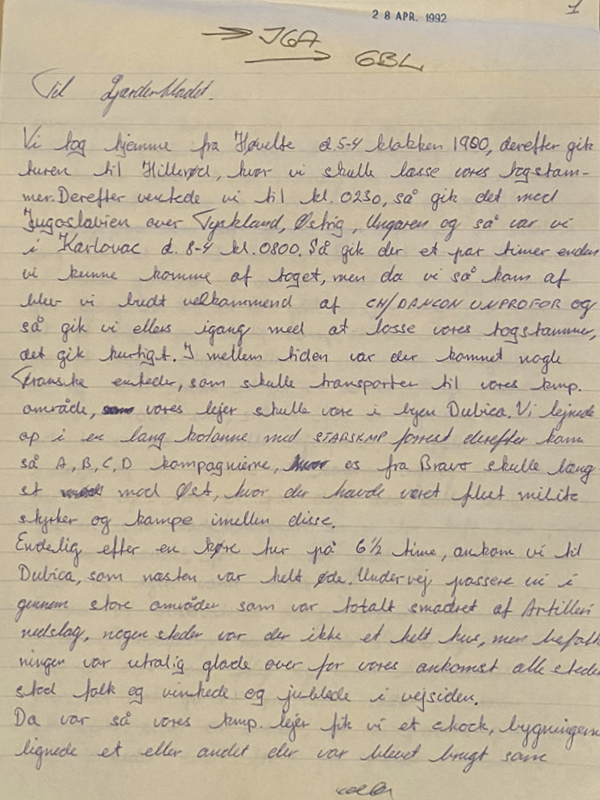 28 APR. 1992
1
JGA
GBL
Til Garderbladet.
Vi tog hjemme fra Høvelte d 5-4 klokken 1900, derefter gik
turen til Hillerød, hvor vi skulle læsse vores togstam-
mer. Derefter ventede vi til kl. 0230, så gik det mod
Jugoslavien over Tyskland, Østrig, Ungaren og så var vi
i Karlovac d. 8-4 kl. 0800. Så gik der et par timer enden
vi kunne komme af toget, men da vi så kom af
blev vi budt velkommend af CH/DANCON UNPROFOR og
så gik vi ellers igang med at losse vores togstammer,
det gik hurtigt. I mellem tiden var der kommet nogle
Franske enheder, som skulle transporter til vores kmp.
område, vores lejer skulle være i byen Dubica. Vi
op i en lang kolonne med STABSKMP forrest derefter kom
så A, B, C, D kompagnierne, os fra Bravo skulle læng
st mod Øst, hvor der havde været flest milite
styrker og kampe imellem disse.
Endelig efter en køre tur på 6½ time, ankom vi til
Dubica, som næsten var helt øde. Undervej passere vi i
gennem store områder som var totalt smadret af Artilleri
nedslag, nogen steder var der ikke et helt hus, men befolk
ningen var utralig glade over for vores ankomst alle steder
stod folk og vinkede og jublede i vejsiden.
Da var så vores kmp. lejer fik vi et chock, bygningerne
lignede et eller andet der var blevet brugt som